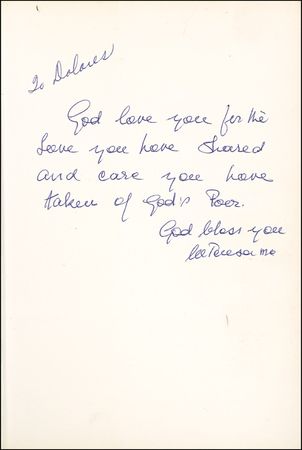 To Dolores
God love you for the
Love you have shared
and care you have
taken of God's Poor.
God bless you
lee Teresa mc